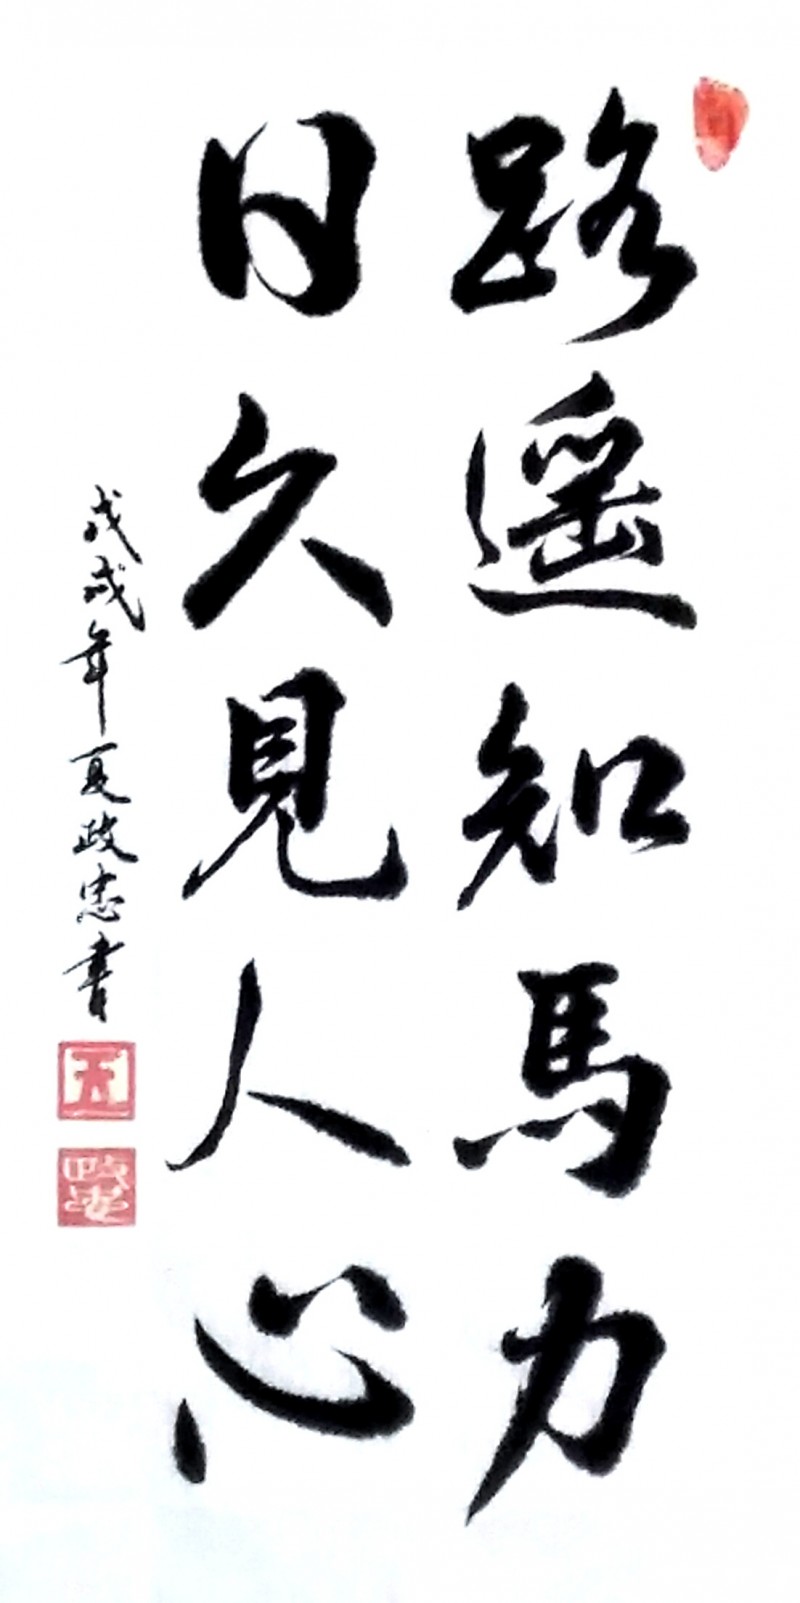 路遥知馬力
日久見人心
戊戌年夏政忠書